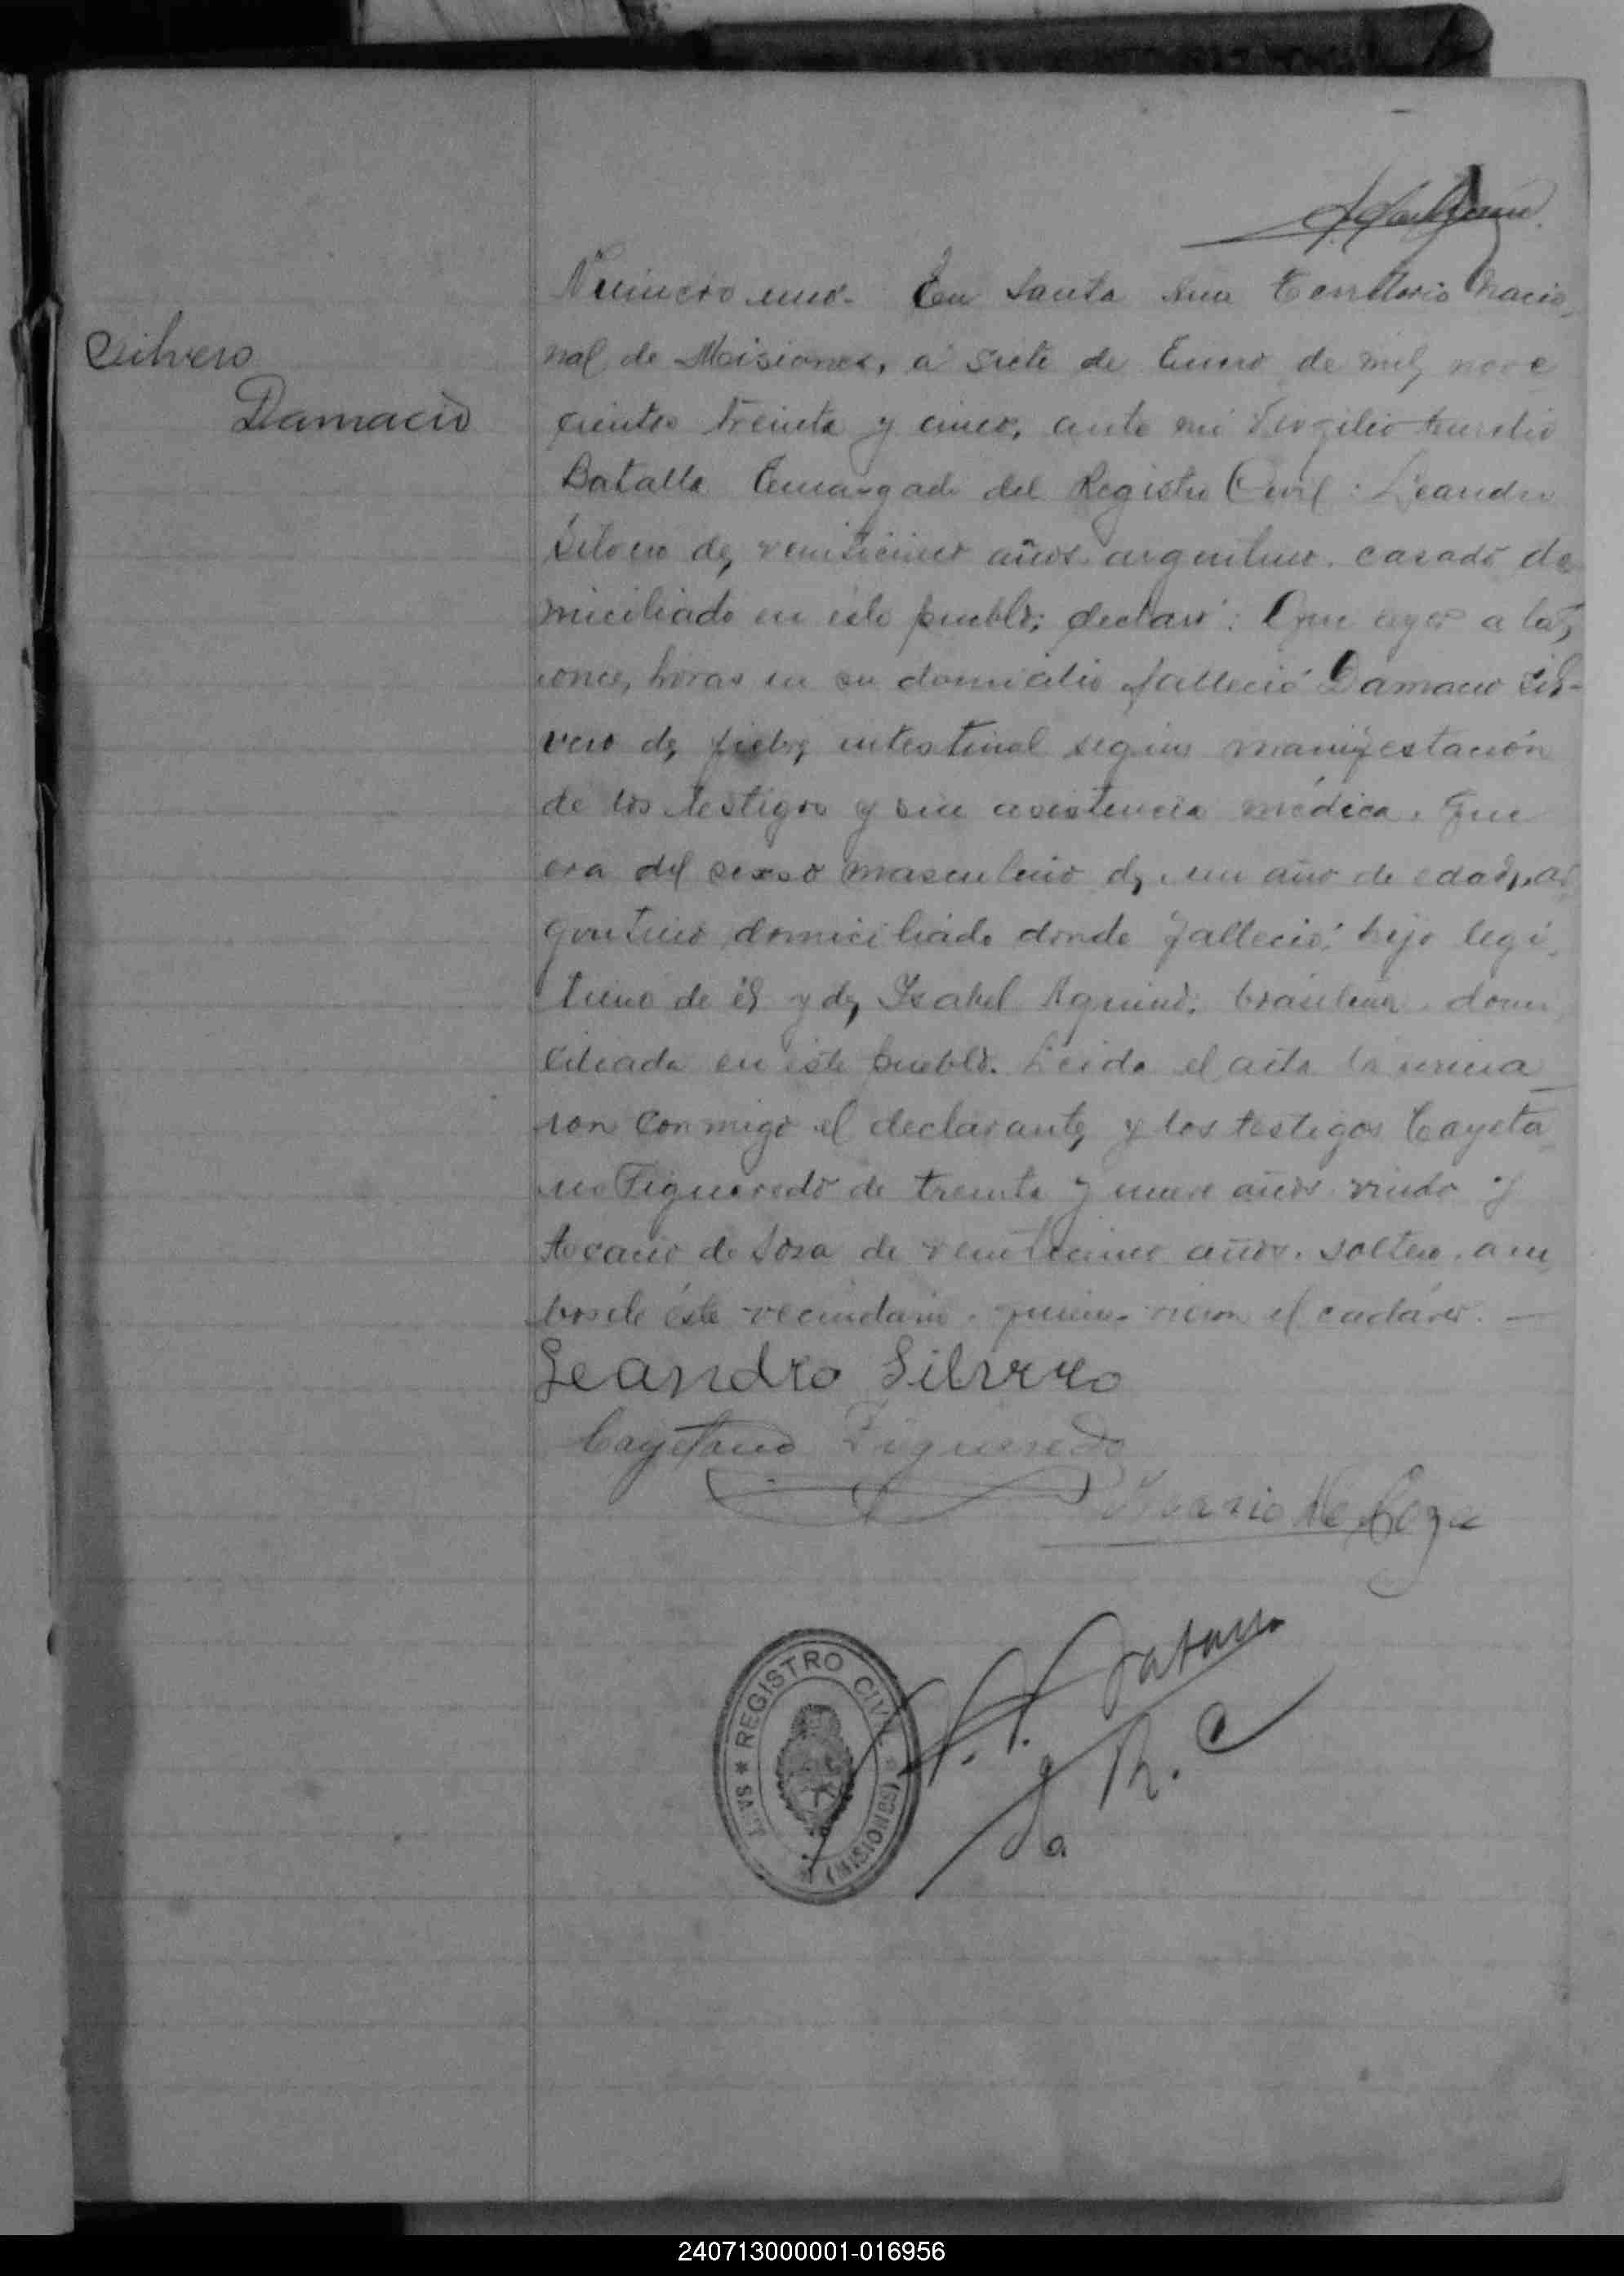 Silvero
Damacio
Número uno. En Santa Ana Territorio Nacio-
nal de Misiones, a siete de Enero de mil nove
cientos treinta y cinco, ante mi Virgilio Aurelio
Batalla Encargado del Registro Civil: Leandro
Silvero de veinticinco años argentino. casado do
miciliado en este pueblo; declaró: Que ayer a las
once horas en su domicilio falleció Damacio Sil-
vero de fiebre intestinal segun manifestación
de los testigos y sin asistencia médica. Que
era del sexso masculino de un año de edad, ar
gentino domiciliado donde falleció: hijo legi-
timo de él y de Isabel Aquino; brasileña. domi
ciliada en este pueblo. Leida el acta la firma
ron conmigo el declarante y los testigos Cayeta
no Figueredo de treinta y nueve años viudo y
de Soza de veinticinco años. soltero. am
bos de éste vecindario. quienes vieron el cadáver. —
Leandro Silvero
Cayetano Figueredo
De Soza
Batalla
R. C
REGISTRO CIVIL
SANT
(MISIONES)
240713000001-016956